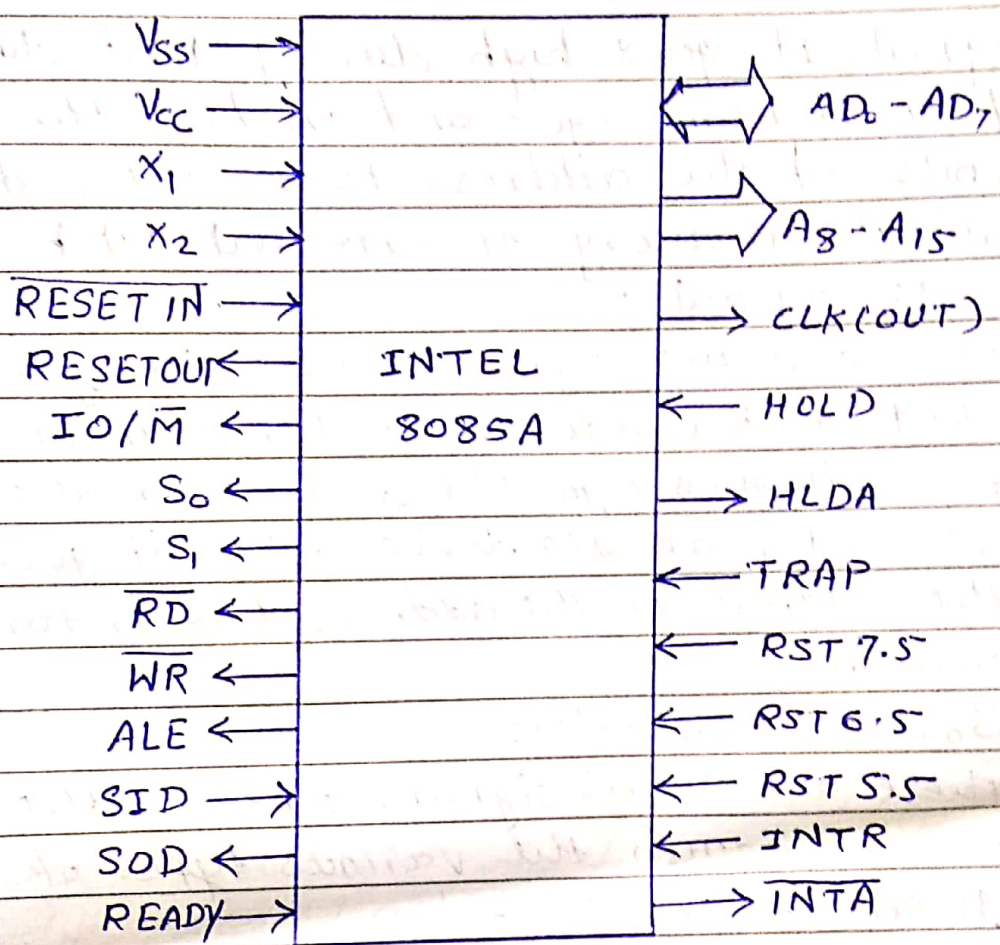 VSS
VCC
X1
X2
R̅E̅S̅E̅T̅ ̅I̅N̅
RESETOUT
IO/M̅
S0
S1
R̅D̅
W̅R̅
ALE
SID
SOD
READY
INTEL
8085A
AD0 - AD7
A8 - A15
CLK(OUT)
HOLD
HLDA
TRAP
RST 7.5
RST 6.5
RST 5.5
INTR
I̅N̅T̅A̅